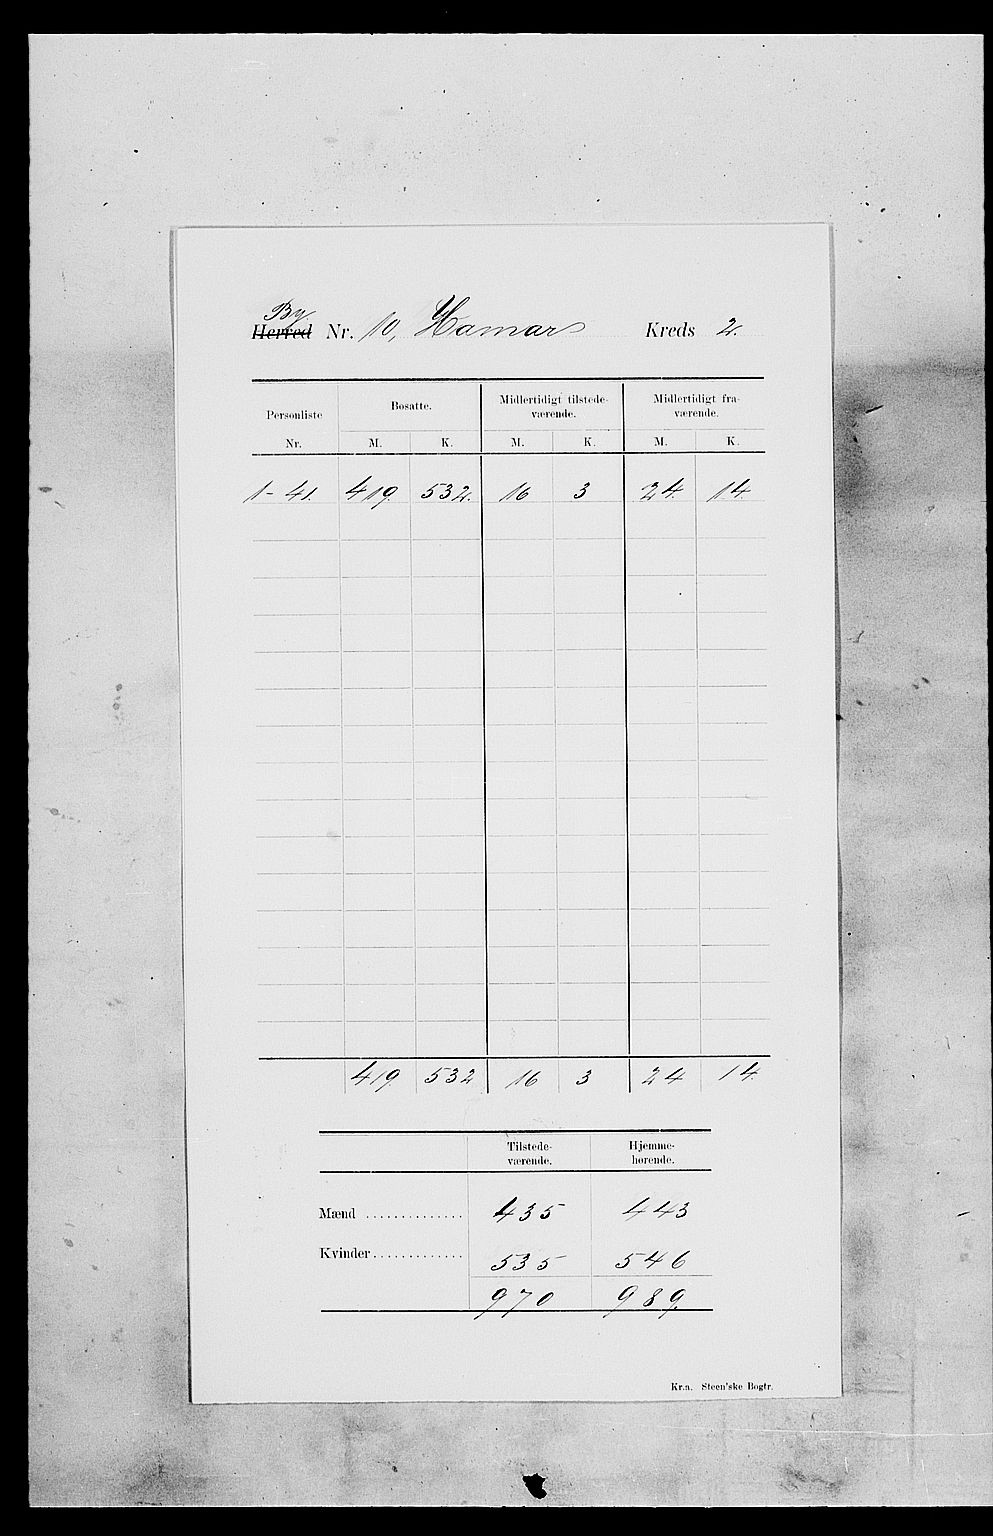 By
Herred Nr. 10, Hamar Kreds 2.
Personliste Nr. Bosatte. Midlertidigt tilstede-værende. Midlertidigt fra-værende.
M. K. M. K. M. K.
1-41. 419. 532. 16 3 24. 14.
419. 532 16 3 24 14.
Tilstede-værende. Hjemme-hørende.
Mænd .............. 435 443
Kvinder ............. 535 546
970 989.
Kr.a. Steen'ske Bogtr.